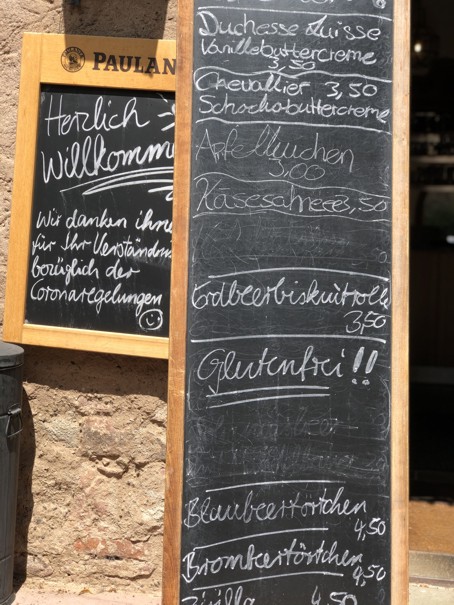 PAULAN
Herzlich
Willkomm
Wir danken ihne
für Ihr Verständni
bezüglich der
Coronaregelungen
Duchesse Luisse
Vanillebuttercreme
3,50
Chevallier 3,50
Schockobuttercreme
Apfelkuchen
3,00
Käsesahne 3,50
Erdbeerbiskuitrolle
3,50
Glutenfrei!!
Blaubeertörtchen
4,50
Brombeertörtchen
4,50
4,50